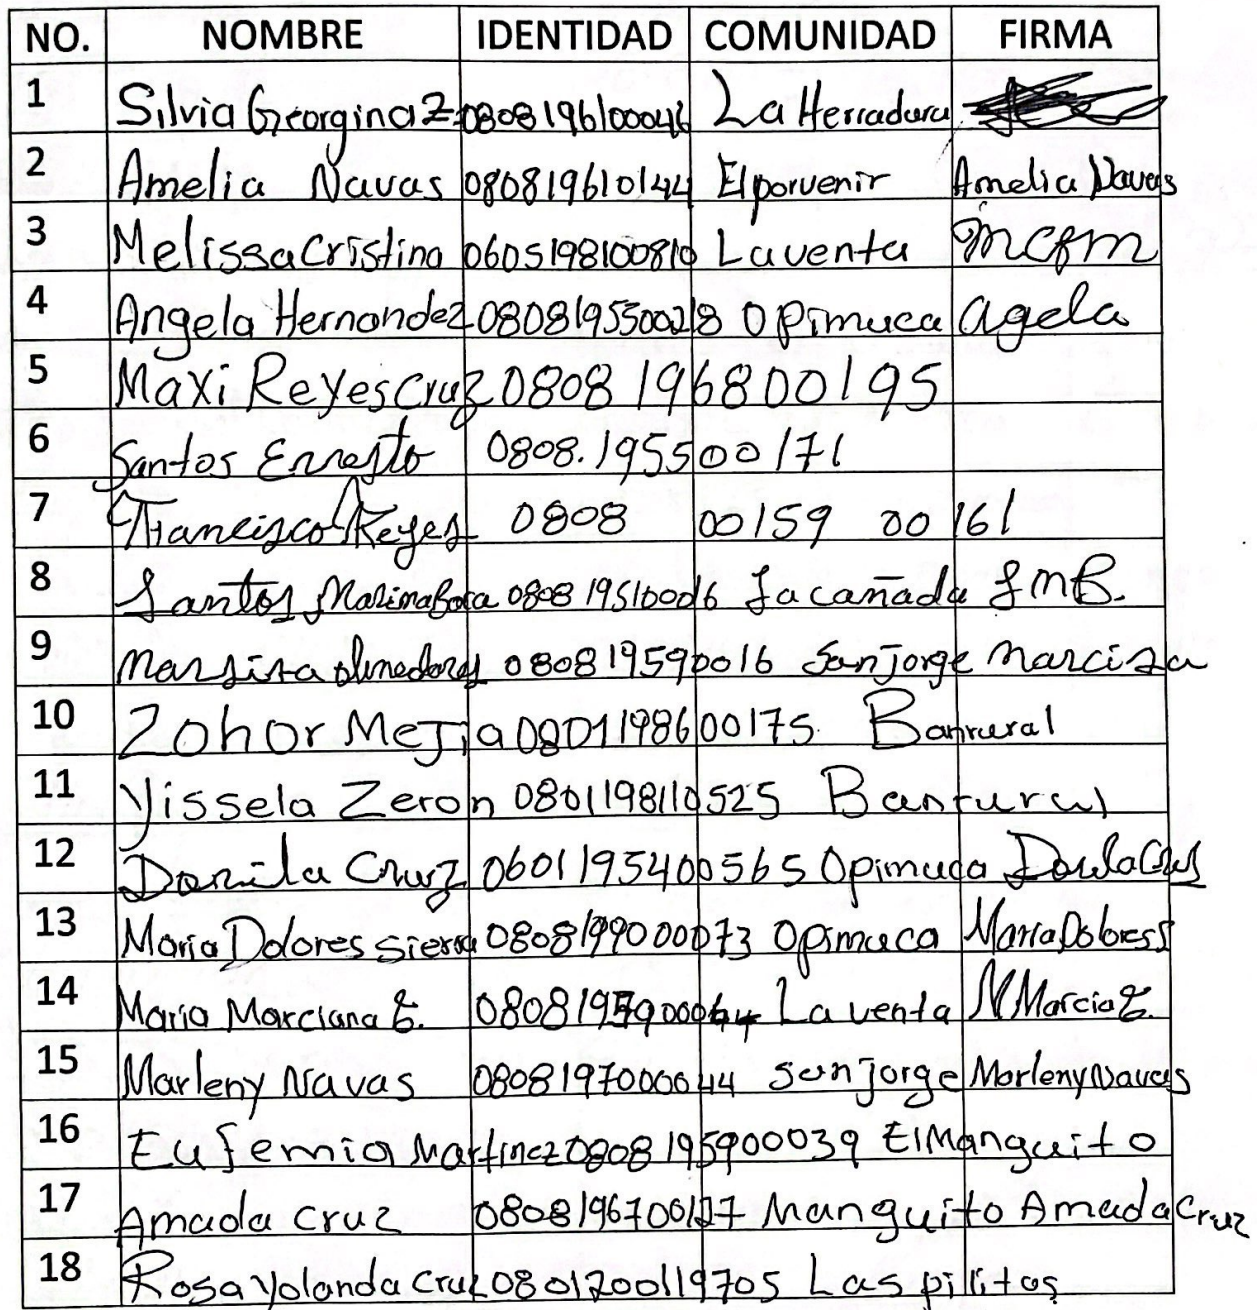 NO. NOMBRE IDENTIDAD COMUNIDAD FIRMA
1 Silvia Georgina Z 0808196100046 La Herradura
2 Amelia Navas 080819610144 El porvenir Amelia Navas
3 Melissa Cristina 0605198100810 La venta mcfm
4 Angela Hernandez 0808195500218 Opimuca agela
5 Maxi Reyes Cruz 0808 196800195
6 Santos Ernesto 0808.195500171
7 Francisco Reyes 0808 00159 00161
8 Santos Marina Baca 0808195100016 La cañada S M B.
9 080819590016 San jorge Narcisa
10 Zohor Mejia 0801198600175 Banrural
11 Yissela Zeron 0801198110525 Banrural
12 Danila Cruz 0601195400565 Opimuca
13 Maria Dolores Sierra 0808199000073 Opimuca Maria Dolores S
14 Maria Marciana E. La venta M Marcia E.
15 Marleny Navas 0808197000044 san jorge Marleny Navas
16 Eufemia Martinez 0808195900039 El Manguito
17 Amada Cruz 0808196700127 Manguito Amada Cruz
18 Rosa Yolanda Cruz 0801200119705 Las pilitas